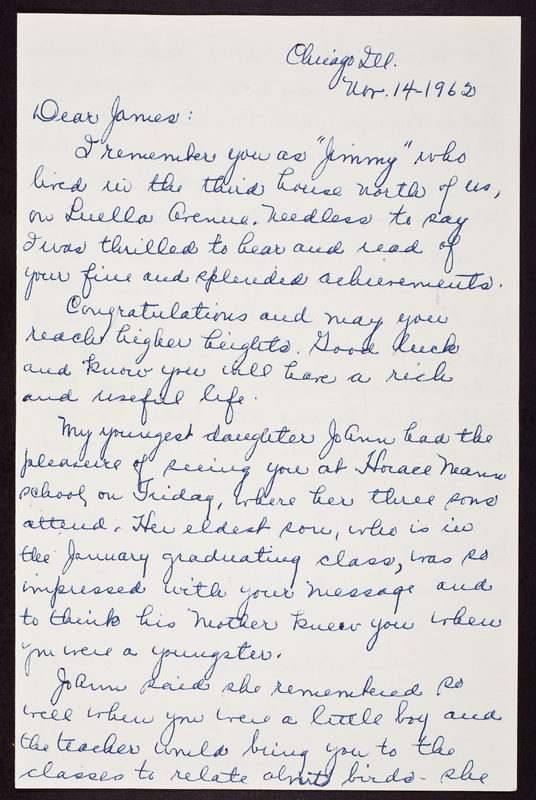 Chicago Ill.
Nov. 14-1962
Dear James:
I remember you as "Jimmy" who
lived in the third house north of us,
on Luella Avenue. Needless to say
I was thrilled to hear and read of
your fine and splended achievements.
Congratulations and may you
reach higher heights. Good luck
and know you will have a rich
and useful life.
My youngest daughter JoAnn had the
pleasure of seeing you at Horace Mann
school, on Friday, where her three sons
attend. Her eldest son, who is in
the January graduating class, was so
impressed with your message and
to think his Mother knew you when
you were a youngster.
JoAnn said she remembered so
well when you were a little boy and
the teacher would bring you to the
classes to relate about birds - she